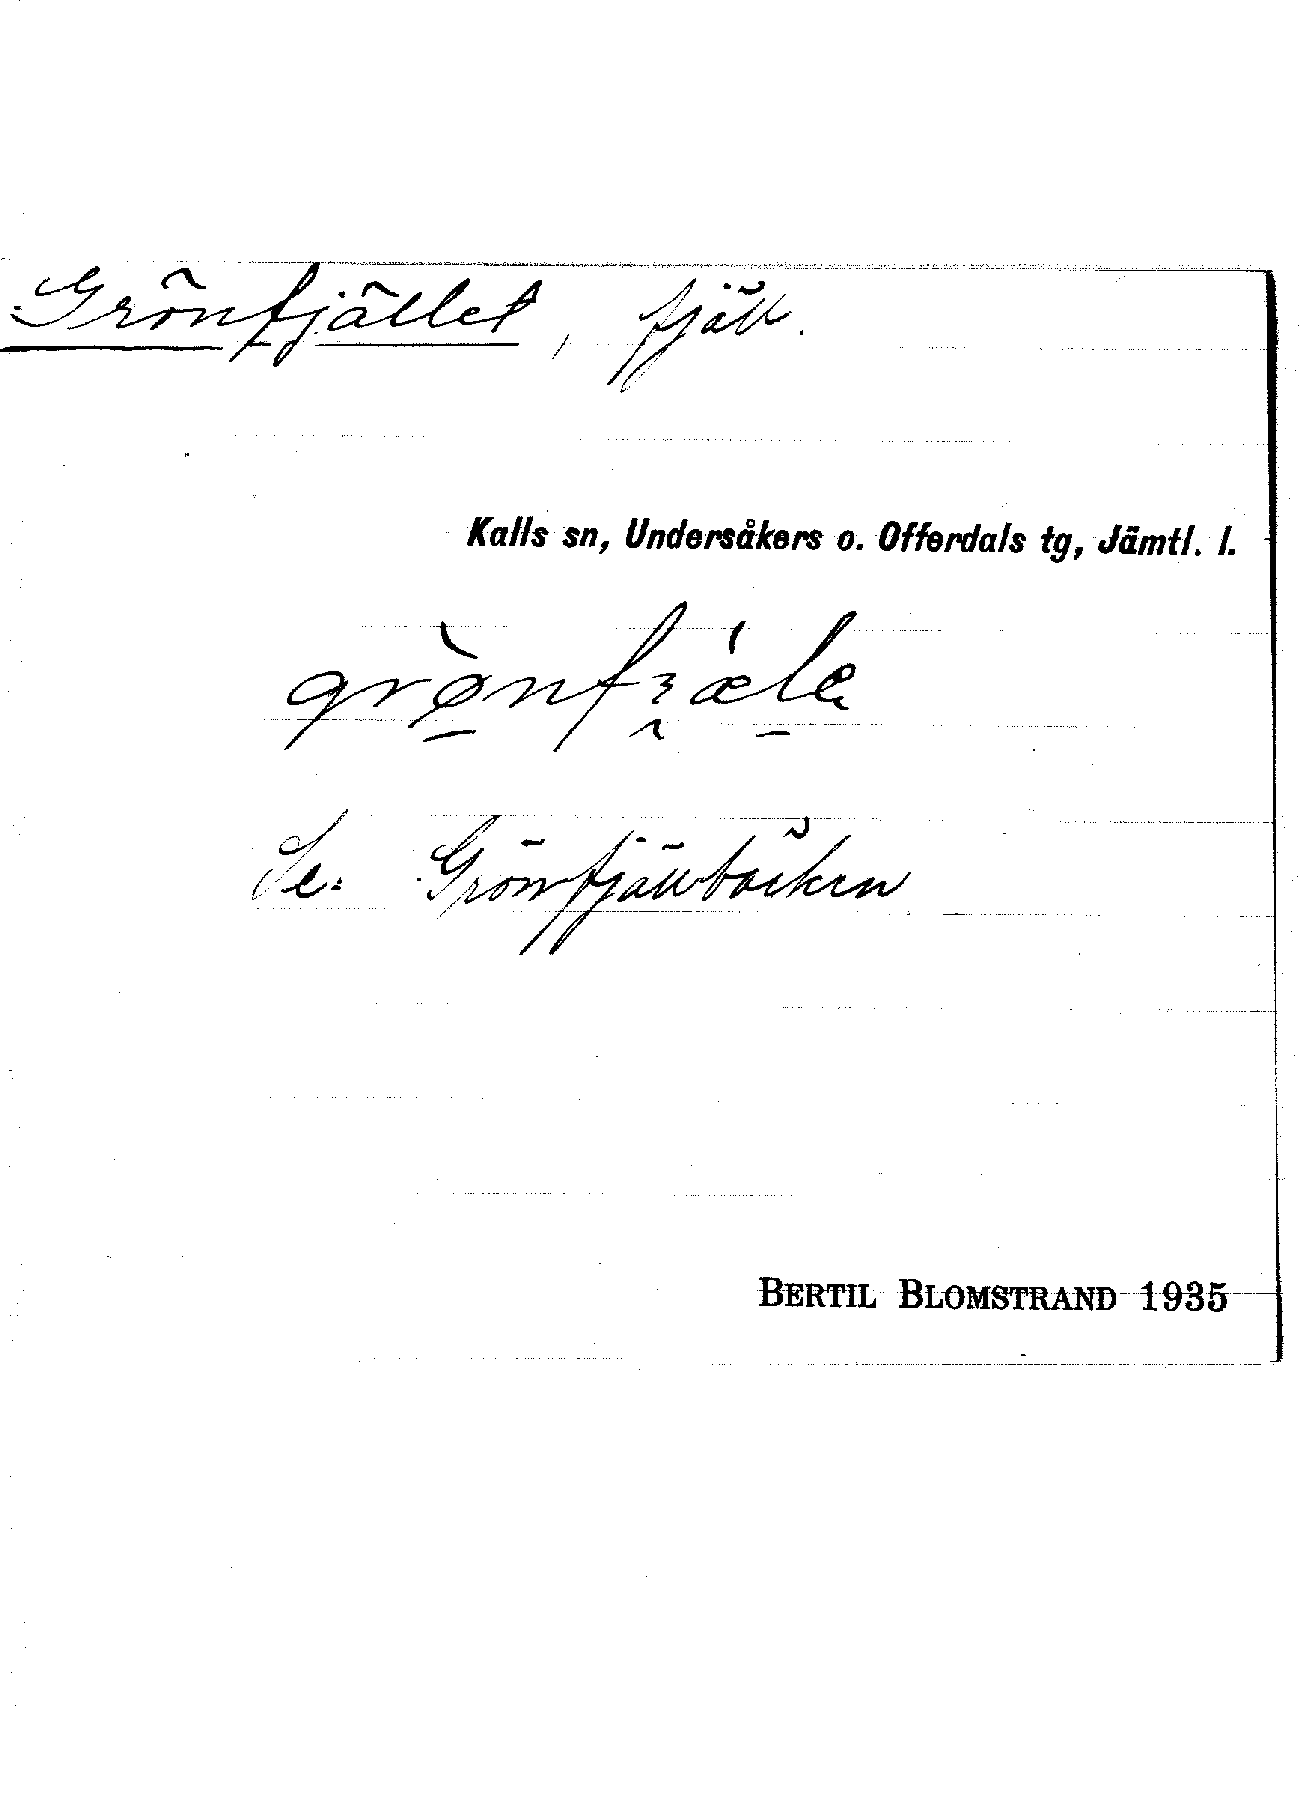 Grönfjället, fjäll.
Kalls sn, Undersåkers o. Offerdals tg, Jämtl. l.
Se: Grönfjällbäcken
BERTIL BLOMSTRAND 1935